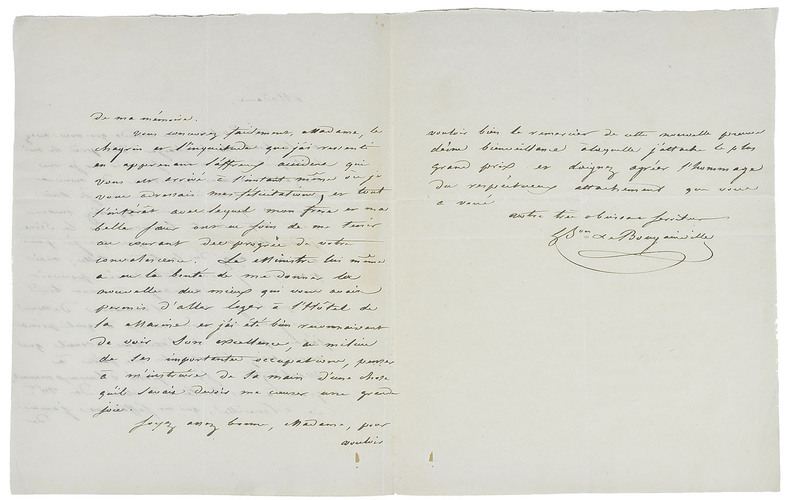 De ma mémoire.
Vous concevrez facilement, Madame, le
chagrin et l'inquiétude que j'ai ressenti
en apprenant l'affreux accident qui
vous est arrivé à l'instant même où je
vous adressais mes félicitations, et tout
l'intérêt avec lequel mon frère et ma
belle sœur ont eu soin de me tenir
au courant des progrès de votre
convalescence. Le Ministre lui même
a eu la bonté de me donner la
nouvelle du mieux qui vous avait
permis d'aller loger à l'Hôtel de
la Marine et j'ai été bien reconnaissant
de voir Son excellence, au milieu
de ses importantes occupations, penser
à m'instruire de sa main d'une chose
qu'il savait devoir me causer une grande
joie.
Soyez assez bonne, Madame, pour
vouloir
vouloir bien le remercier de cette nouvelle preuve
de bienveillance à laquelle j'attache le plus
grand prix et daignez agréer l'hommage
du respectueux attachement que vous
a voué
votre très obéissant serviteur
Bon de Bougainville